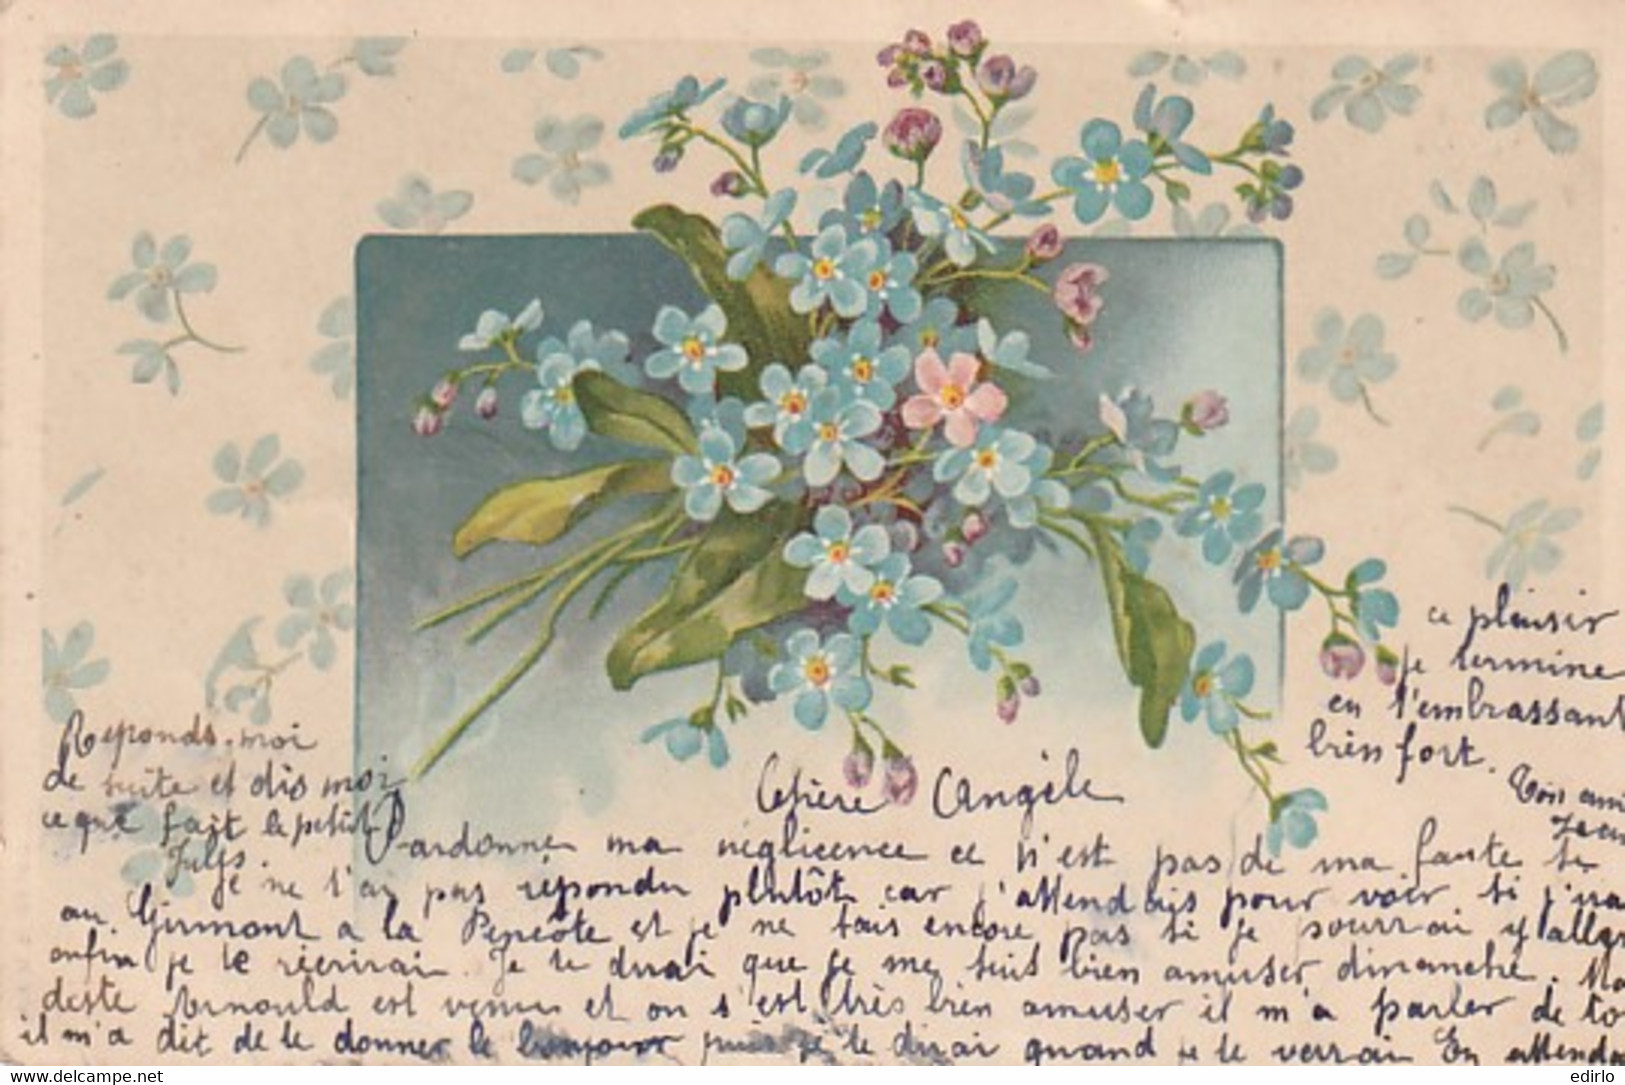 Chère Angèle
Pardonne ma néglicence ce n'est pas de ma faute si
je ne t'ai pas répondu plutôt car j'attendais pour voir si j'irai
au Girmont a la Pencôte et je ne sais encore pas si je pourrai y aller
enfin je te récrirai. Je te dirai que je me suis bien amuser dimanche. Mo
deste Arnould est venu et on s'est très bien amuser il m'a parler de to
il m'a dit de te donner le bonjour puis je te dirai quand je te verrai En attenda
ce plaisir
je termine
en t'embrassant
bien fort.
Ton ami
Jean
Reponds-moi
de suite et dis moi
ce que fait le petit
Jules.
© www.delcampe.net
edirlo